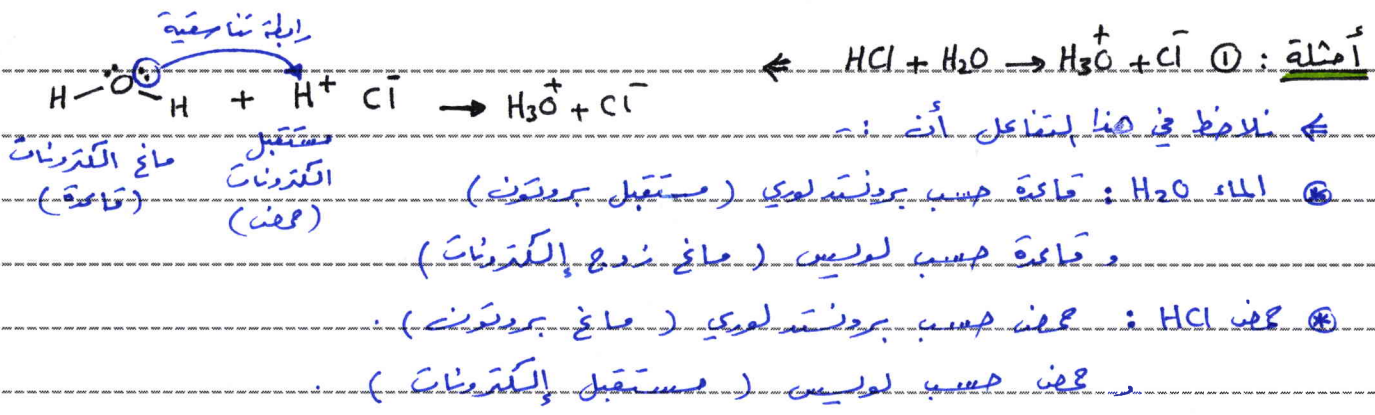 رابطة تناسقية
أمثلة : ① HCl + H₂O → H₃O⁺ + Cl⁻ ⇐
H–O–H + H⁺ Cl⁻ → H₃O⁺ + Cl⁻
مانح الكترونات (قاعدة)
مستقبل الكترونات (حمض)
⇐ نلاحظ في هذا التفاعل أن :-
⊛ الماء H₂O : قاعدة حسب برونستد لوري (مستقبل بروتون)
و قاعدة حسب لويس (مانح زوج إلكترونات)
⊛ حمض HCl : حمض حسب برونستد لوري (مانح بروتون) .
و حمض حسب لويس (مستقبل إلكترونات) .